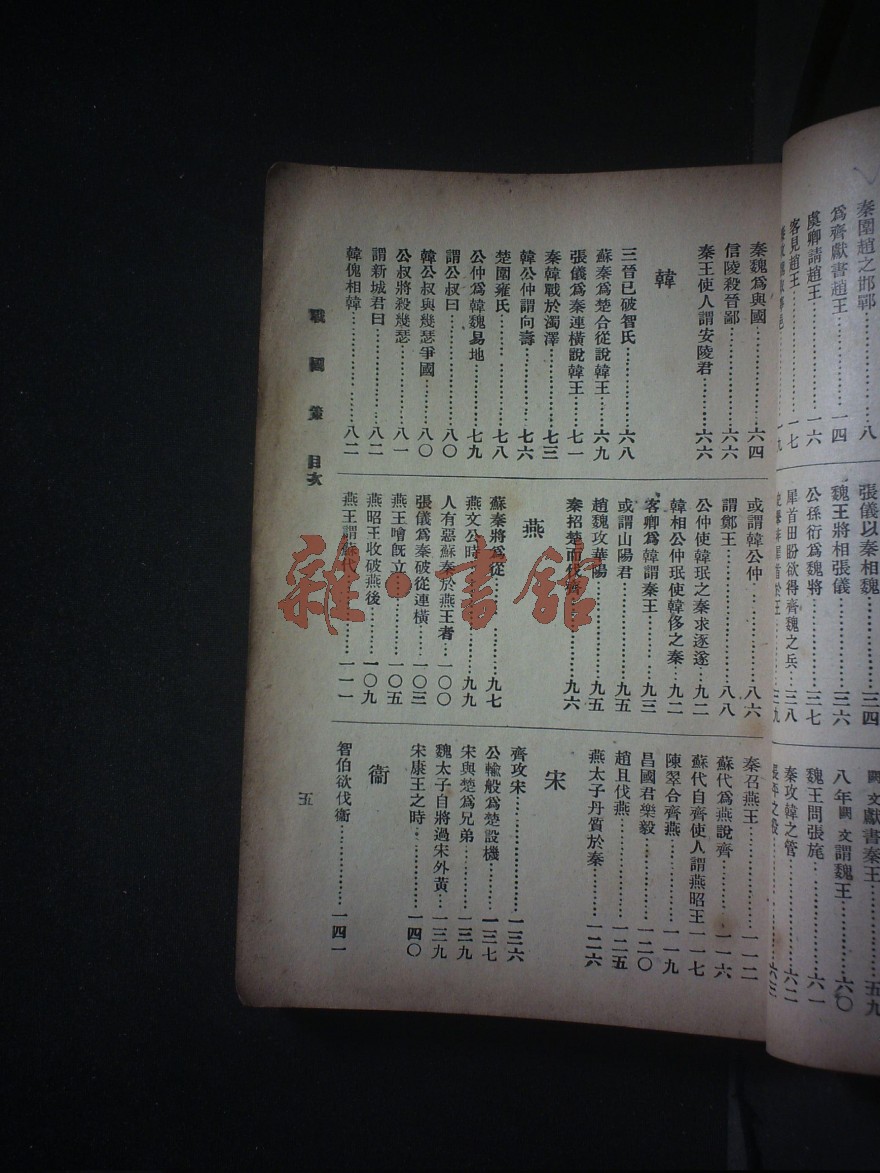 秦圍趙之邯鄲………八
爲齊獻書趙王………一四
虞卿請趙王………一六
客見趙王………一七
張儀以秦相魏………三四
魏王將相張儀………三六
公孫衍爲魏將………三七
犀首田盼欲得齊魏之兵…三八
獻書秦王………五九
八年闕文謂魏王………六〇
魏王問張旄………六一
秦攻韓之管………六二
秦魏爲與國………六四
信陵殺晉鄙………六六
秦王使人謂安陵君………六六
韓
三晉已破智氏………六八
蘇秦爲楚合從說韓王………六九
張儀爲秦連橫說韓王………七一
秦韓戰於濁澤………七三
韓公仲謂向壽………七六
楚圍雍氏………七八
公仲爲韓魏易地………七九
謂公叔曰………八〇
韓公叔與幾瑟爭國………八〇
公叔將殺幾瑟………八一
謂新城君曰………八二
韓傀相韓………八二
或謂韓公仲………八六
謂鄭王………八八
公仲使韓珉之秦求逐遂………九二
韓相公仲珉使韓侈之秦………九二
客卿爲韓謂秦王………九三
或謂山陽君………九五
趙魏攻華陽………九五
秦招楚而伐齊………九六
燕
蘇秦將爲從………九七
燕文公時………九九
人有惡蘇秦於燕王者………一〇〇
張儀爲秦破從連橫………一〇三
燕王噲既立………一〇五
燕昭王收破燕後………一〇九
燕王謂蘇代………一一一
秦召燕王………一一二
蘇代爲燕說齊………一一六
蘇代自齊使人謂燕昭王…一一七
陳翠合齊燕………一一九
昌國君樂毅………一二〇
趙且伐燕………一二五
燕太子丹質於秦………一二六
宋
齊攻宋………一三六
公輸般爲楚設機………一三七
宋與楚爲兄弟………一三九
魏太子自將過宋外黃………一三九
宋康王之時………一四〇
衞
智伯欲伐衞………一四一
戰國策 目次
五
雜·書館